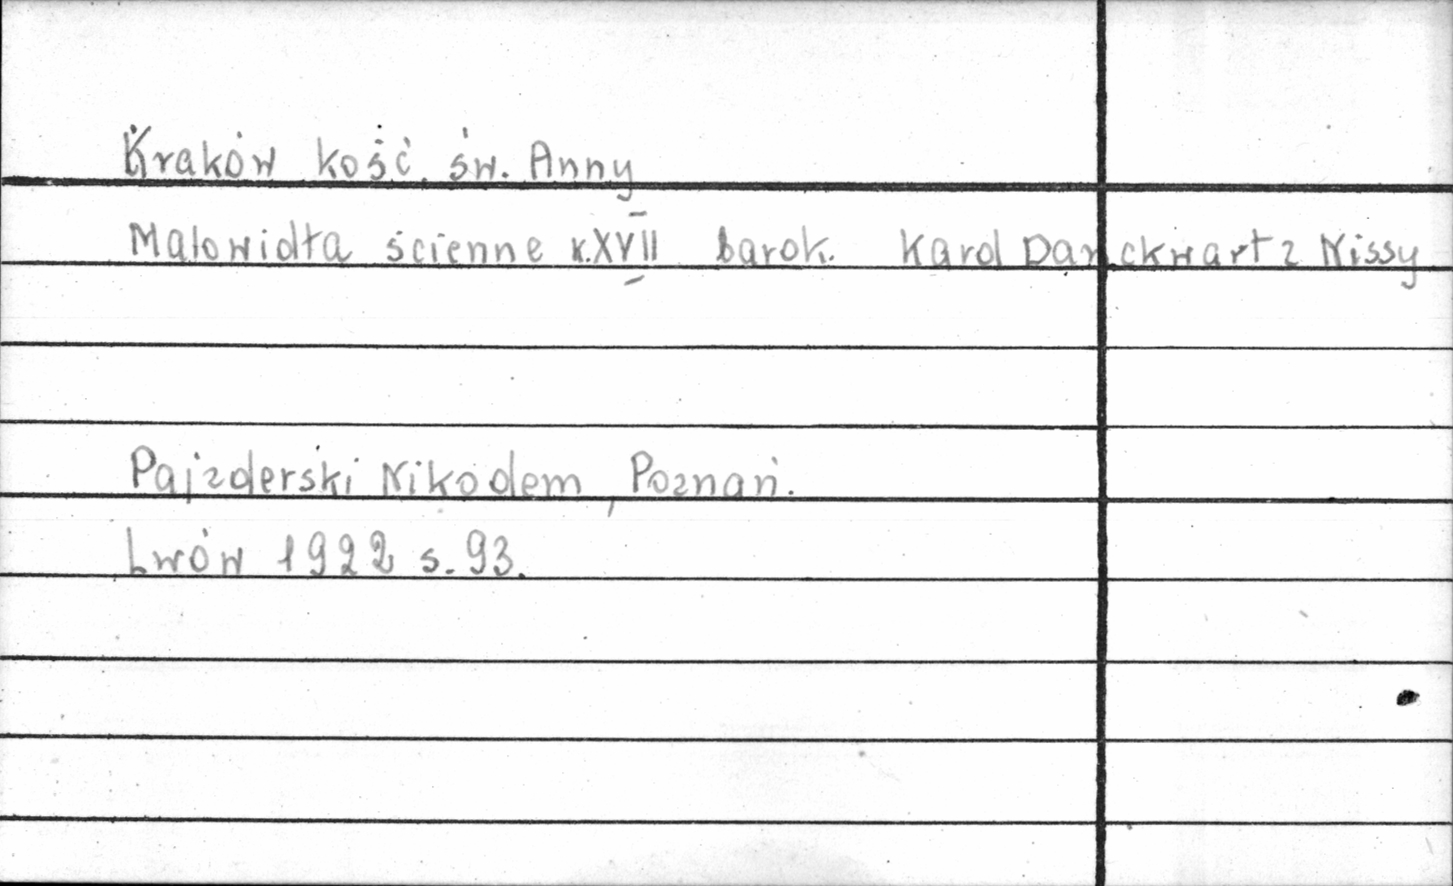 Kraków kość. św. Anny
Malowidła ścienne k.XVII barok. Karol Danckwart z Nissy
Pajzderski Nikodem, Poznań.
Lwów 1922 s. 93.